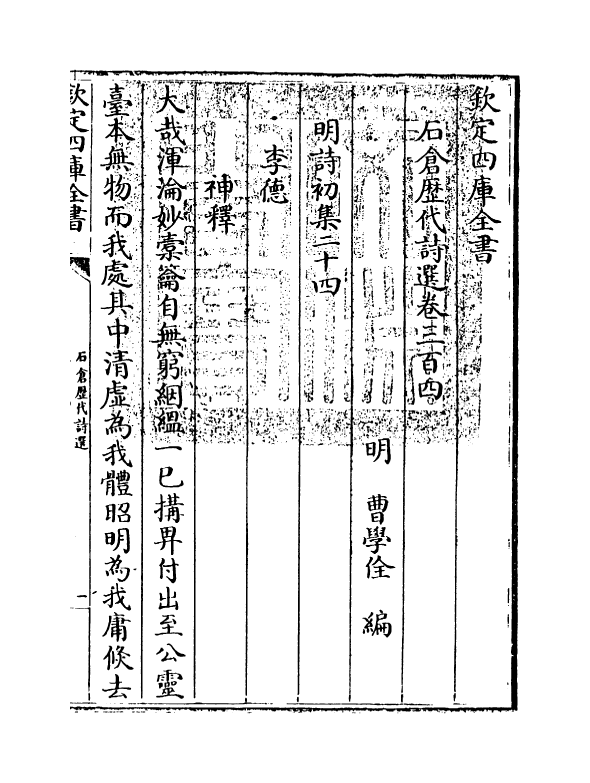 欽定四庫全書
石倉歷代詩選卷三百四
明 曹學佺 編
明詩初集二十四
李德
神釋
大哉渾淪妙橐籥自無窮絪縕一已搆畀付出至公靈
臺本無物而我處其中清虛為我體昭明為我庸倐去
欽定四庫全書
石倉歷代詩選
一